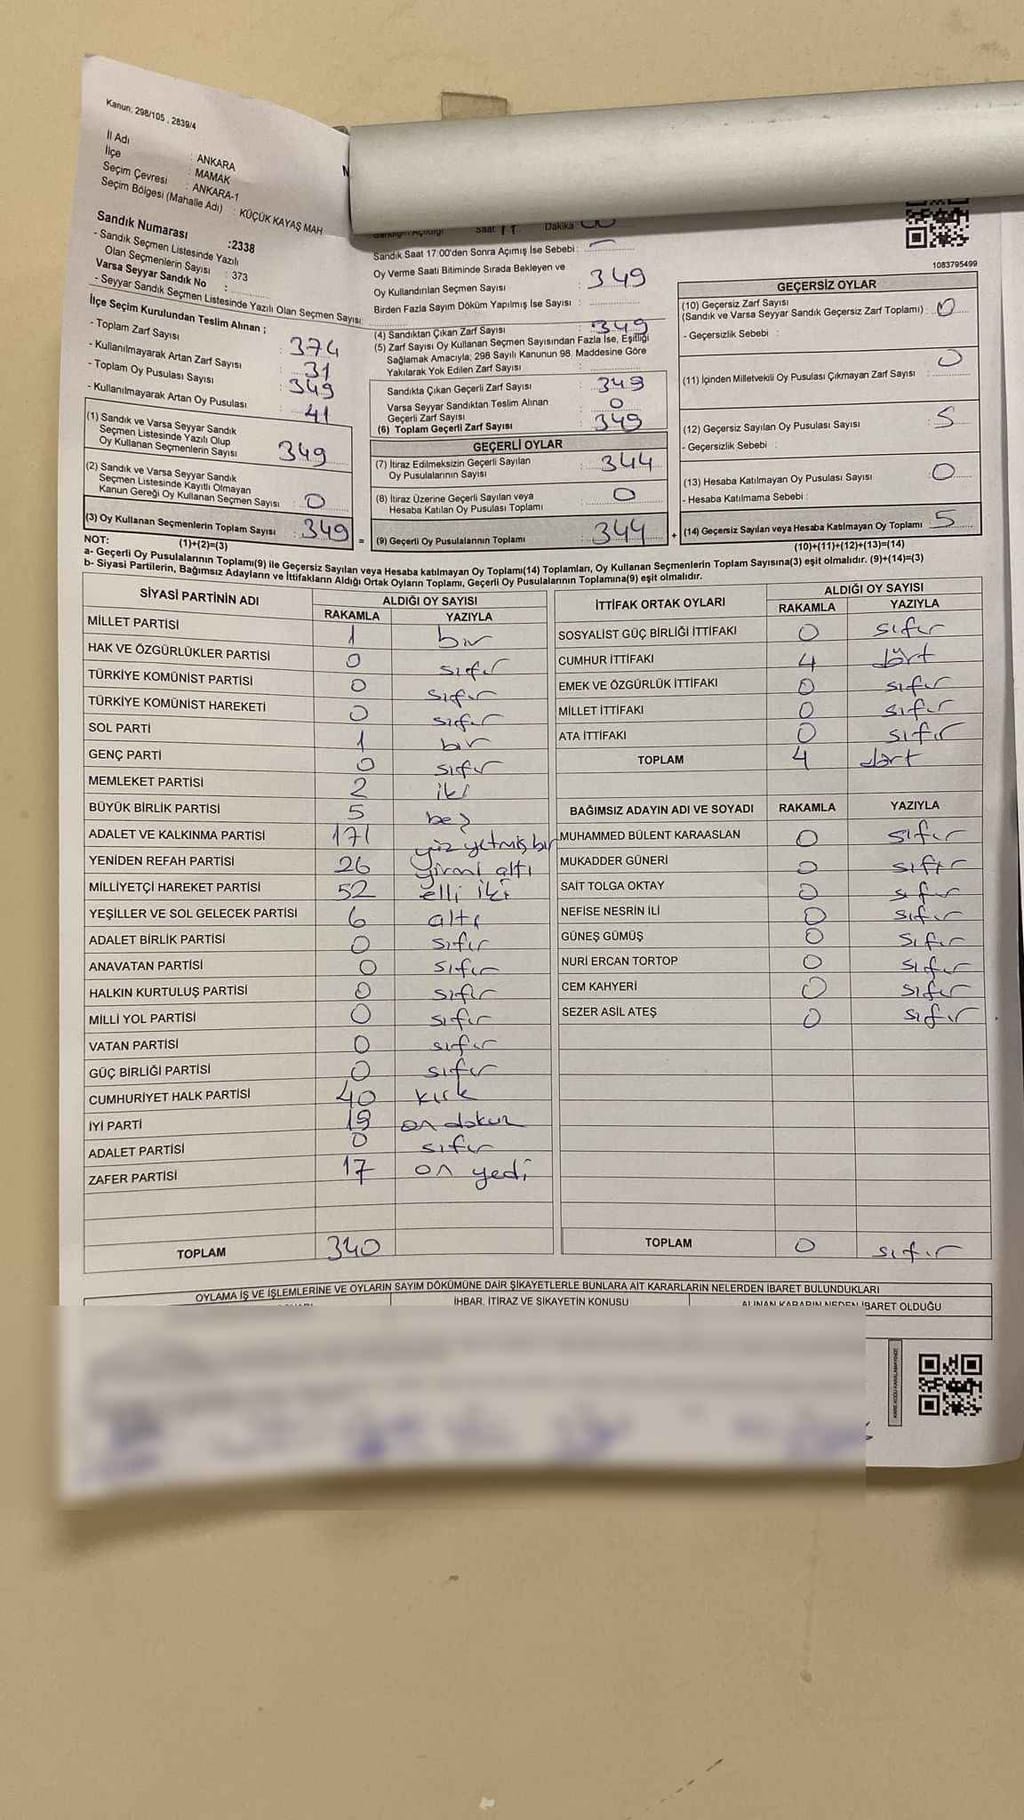 Kanun: 298/105 , 2839/4
İl Adı : ANKARA
İlçe : MAMAK
Seçim Çevresi : ANKARA-1
Seçim Bölgesi (Mahalle Adı) : KÜÇÜK KAYAŞ MAH
Sandık Numarası :2338
- Sandık Seçmen Listesinde Yazılı
Olan Seçmenlerin Sayısı : 373
Varsa Seyyar Sandık No :
- Seyyar Sandık Seçmen Listesinde Yazılı Olan Seçmen Sayısı:
İlçe Seçim Kurulundan Teslim Alınan ;
- Toplam Zarf Sayısı : 374
- Kullanılmayarak Artan Zarf Sayısı : 31
- Toplam Oy Pusulası Sayısı : 349
- Kullanılmayarak Artan Oy Pusulası : 41
(1) Sandık ve Varsa Seyyar Sandık
Seçmen Listesinde Yazılı Olup
Oy Kullanan Seçmenlerin Sayısı : 349
(2) Sandık ve Varsa Seyyar Sandık
Seçmen Listesinde Kayıtlı Olmayan
Kanun Gereği Oy Kullanan Seçmen Sayısı : 0
(3) Oy Kullanan Seçmenlerin Toplam Sayısı : 349 =
Saat 17 Dakika 00
Sandık Saat 17:00'den Sonra Açımış İse Sebebi :
Oy Verme Saati Bitiminde Sırada Bekleyen ve
Oy Kullandırılan Seçmen Sayısı : 349
Birden Fazla Sayım Döküm Yapılmış İse Sayısı :
(4) Sandıktan Çıkan Zarf Sayısı : 349
(5) Zarf Sayısı Oy Kullanan Seçmen Sayısından Fazla İse, Eşitliği
Sağlamak Amacıyla; 298 Sayılı Kanunun 98. Maddesine Göre
Yakılarak Yok Edilen Zarf Sayısı :
Sandıkta Çıkan Geçerli Zarf Sayısı : 349
Varsa Seyyar Sandıktan Teslim Alınan
Geçerli Zarf Sayısı : 0
(6) Toplam Geçerli Zarf Sayısı : 349
GEÇERLİ OYLAR
(7) İtiraz Edilmeksizin Geçerli Sayılan
Oy Pusulalarının Sayısı : 344
(8) İtiraz Üzerine Geçerli Sayılan veya
Hesaba Katılan Oy Pusulası Toplamı : 0
(9) Geçerli Oy Pusulalarının Toplamı : 344 +
1083795499
GEÇERSİZ OYLAR
(10) Geçersiz Zarf Sayısı
(Sandık ve Varsa Seyyar Sandık Geçersiz Zarf Toplamı) : 0
- Geçersizlik Sebebi :
(11) İçinden Milletvekili Oy Pusulası Çıkmayan Zarf Sayısı : 0
(12) Geçersiz Sayılan Oy Pusulası Sayısı : 5
- Geçersizlik Sebebi :
(13) Hesaba Katılmayan Oy Pusulası Sayısı : 0
- Hesaba Katılmama Sebebi :
(14) Geçersiz Sayılan veya Hesaba Katılmayan Oy Toplamı : 5
NOT: (1)+(2)=(3) (10)+(11)+(12)+(13)=(14)
a- Geçerli Oy Pusulalarının Toplamı(9) ile Geçersiz Sayılan veya Hesaba katılmayan Oy Toplamı(14) Toplamları, Oy Kullanan Seçmenlerin Toplam Sayısına(3) eşit olmalıdır. (9)+(14)=(3)
b- Siyasi Partilerin, Bağımsız Adayların ve İttifakların Aldığı Ortak Oyların Toplamı, Geçerli Oy Pusulalarının Toplamına(9) eşit olmalıdır.
SİYASİ PARTİNİN ADI ALDIĞI OY SAYISI
RAKAMLA YAZIYLA
MİLLET PARTİSİ 1 bir
HAK VE ÖZGÜRLÜKLER PARTİSİ 0 sıfır
TÜRKİYE KOMÜNİST PARTİSİ 0 sıfır
TÜRKİYE KOMÜNİST HAREKETİ 0 sıfır
SOL PARTİ 1 bir
GENÇ PARTİ 0 sıfır
MEMLEKET PARTİSİ 2 iki
BÜYÜK BİRLİK PARTİSİ 5 beş
ADALET VE KALKINMA PARTİSİ 171 yüz yetmiş bir
YENİDEN REFAH PARTİSİ 26 yirmi altı
MİLLİYETÇİ HAREKET PARTİSİ 52 elli iki
YEŞİLLER VE SOL GELECEK PARTİSİ 6 altı
ADALET BİRLİK PARTİSİ 0 sıfır
ANAVATAN PARTİSİ 0 sıfır
HALKIN KURTULUŞ PARTİSİ 0 sıfır
MİLLİ YOL PARTİSİ 0 sıfır
VATAN PARTİSİ 0 sıfır
GÜÇ BİRLİĞİ PARTİSİ 0 sıfır
CUMHURİYET HALK PARTİSİ 40 kırk
İYİ PARTİ 19 on dokuz
ADALET PARTİSİ 0 sıfır
ZAFER PARTİSİ 17 on yedi
TOPLAM 340
İTTİFAK ORTAK OYLARI ALDIĞI OY SAYISI
RAKAMLA YAZIYLA
SOSYALİST GÜÇ BİRLİĞİ İTTİFAKI 0 sıfır
CUMHUR İTTİFAKI 4 dört
EMEK VE ÖZGÜRLÜK İTTİFAKI 0 sıfır
MİLLET İTTİFAKI 0 sıfır
ATA İTTİFAKI 0 sıfır
TOPLAM 4 dört
BAĞIMSIZ ADAYIN ADI VE SOYADI RAKAMLA YAZIYLA
MUHAMMED BÜLENT KARAASLAN 0 sıfır
MUKADDER GÜNERİ 0 sıfır
SAİT TOLGA OKTAY 0 sıfır
NEFİSE NESRİN İLİ 0 sıfır
GÜNEŞ GÜMÜŞ 0 sıfır
NURİ ERCAN TORTOP 0 sıfır
CEM KAHYERİ 0 sıfır
SEZER ASİL ATEŞ 0 sıfır
TOPLAM 0 sıfır
OYLAMA İŞ VE İŞLEMLERİNE VE OYLARIN SAYIM DÖKÜMÜNE DAİR ŞİKAYETLERLE BUNLARA AİT KARARLARIN NELERDEN İBARET BULUNDUKLARI
İHBAR, İTİRAZ VE ŞİKAYETİN KONUSU
ALINAN KARARIN NEDEN İBARET OLDUĞU